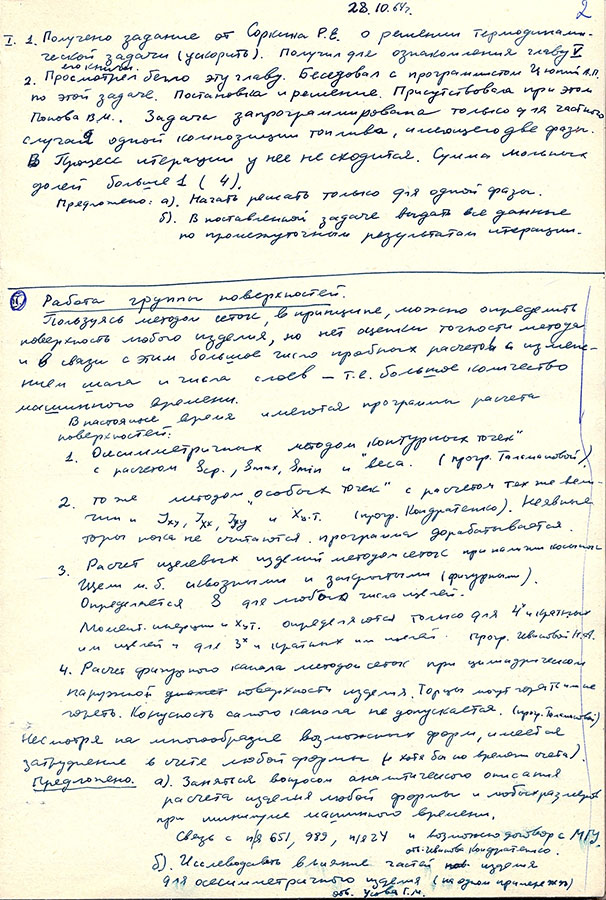 28.10.64г.
2
I. 1. Получено задание от Соркина Р.Е. о решении термодинами-
ческой задачи (ускорить). Получил для ознакомления главу V
его книги.
2. Просмотрел бегло эту главу. Беседовал с программистом
по этой задаче. Постановка и решение. Присутствовал при этом
Попова В.М.. Задача запрограммирована только для частного
случая одной композиции топлива, имеющего две фазы.
Процесс итерации у нее не сходится. Сумма мольных
долей больше 1 (4).
Предложено: а). Начать решать только для одной фазы.
б). В поставленной задаче выдать все данные
по промежуточным результатам итерации.
II Работа группы поверхностей.
Пользуясь методом сеток, в принципе, можно определить
поверхность любого изделия, но нет оценки точности метода
и в связи с этим большое число пробных расчетов с измене-
нием шага и числа слоев – т.е. большое количество
машинного времени.
В настоящее время имеются программы расчета
поверхностей:
1. Осесимметричных методом "контурных точек"
с расчетом Sср., Smax, Smin и "веса. (прогр. Талмановой).
2. то же методом "особых точек" с расчетом так же вели-
чин и Jxy, Jxx, Jyy и Xц.т. (прогр. Кондратенко). Неявные
торы пока не считаются. программа дорабатывается.
3. Расчет щелевых изделий методом сеток при наличии
Щели м.б. сквозными и закрытыми (фигурными).
Определяется S для любого числа щелей.
Момент инерции и Xц.т. определяются только для 4х и кратных
им щелей и для 3х и кратных им щелей. прогр.
4. Расчет фигурного канала методом сеток при цилиндрической
наружной поверхности изделия. Торцы могут гореть и не
гореть. Конусность самого канала не допускается. (прогр. Талмановой)
Несмотря на многообразие возможных форм, имеется
затруднение в счете любой формы (и хотя бы по времени счета).
Предложено. а). Заняться вопросом аналитического описания
расчета изделия любой формы и любых размеров
при минимуме машинного времени.
Связь с п/я 651, 989, п/я 24 и возможно договор с МГУ.
отв. Кондратенко.
б). Исследовать влияние частей изделия
для осесимметричного изделия (на одном примере)
отв. Усова Г.М.